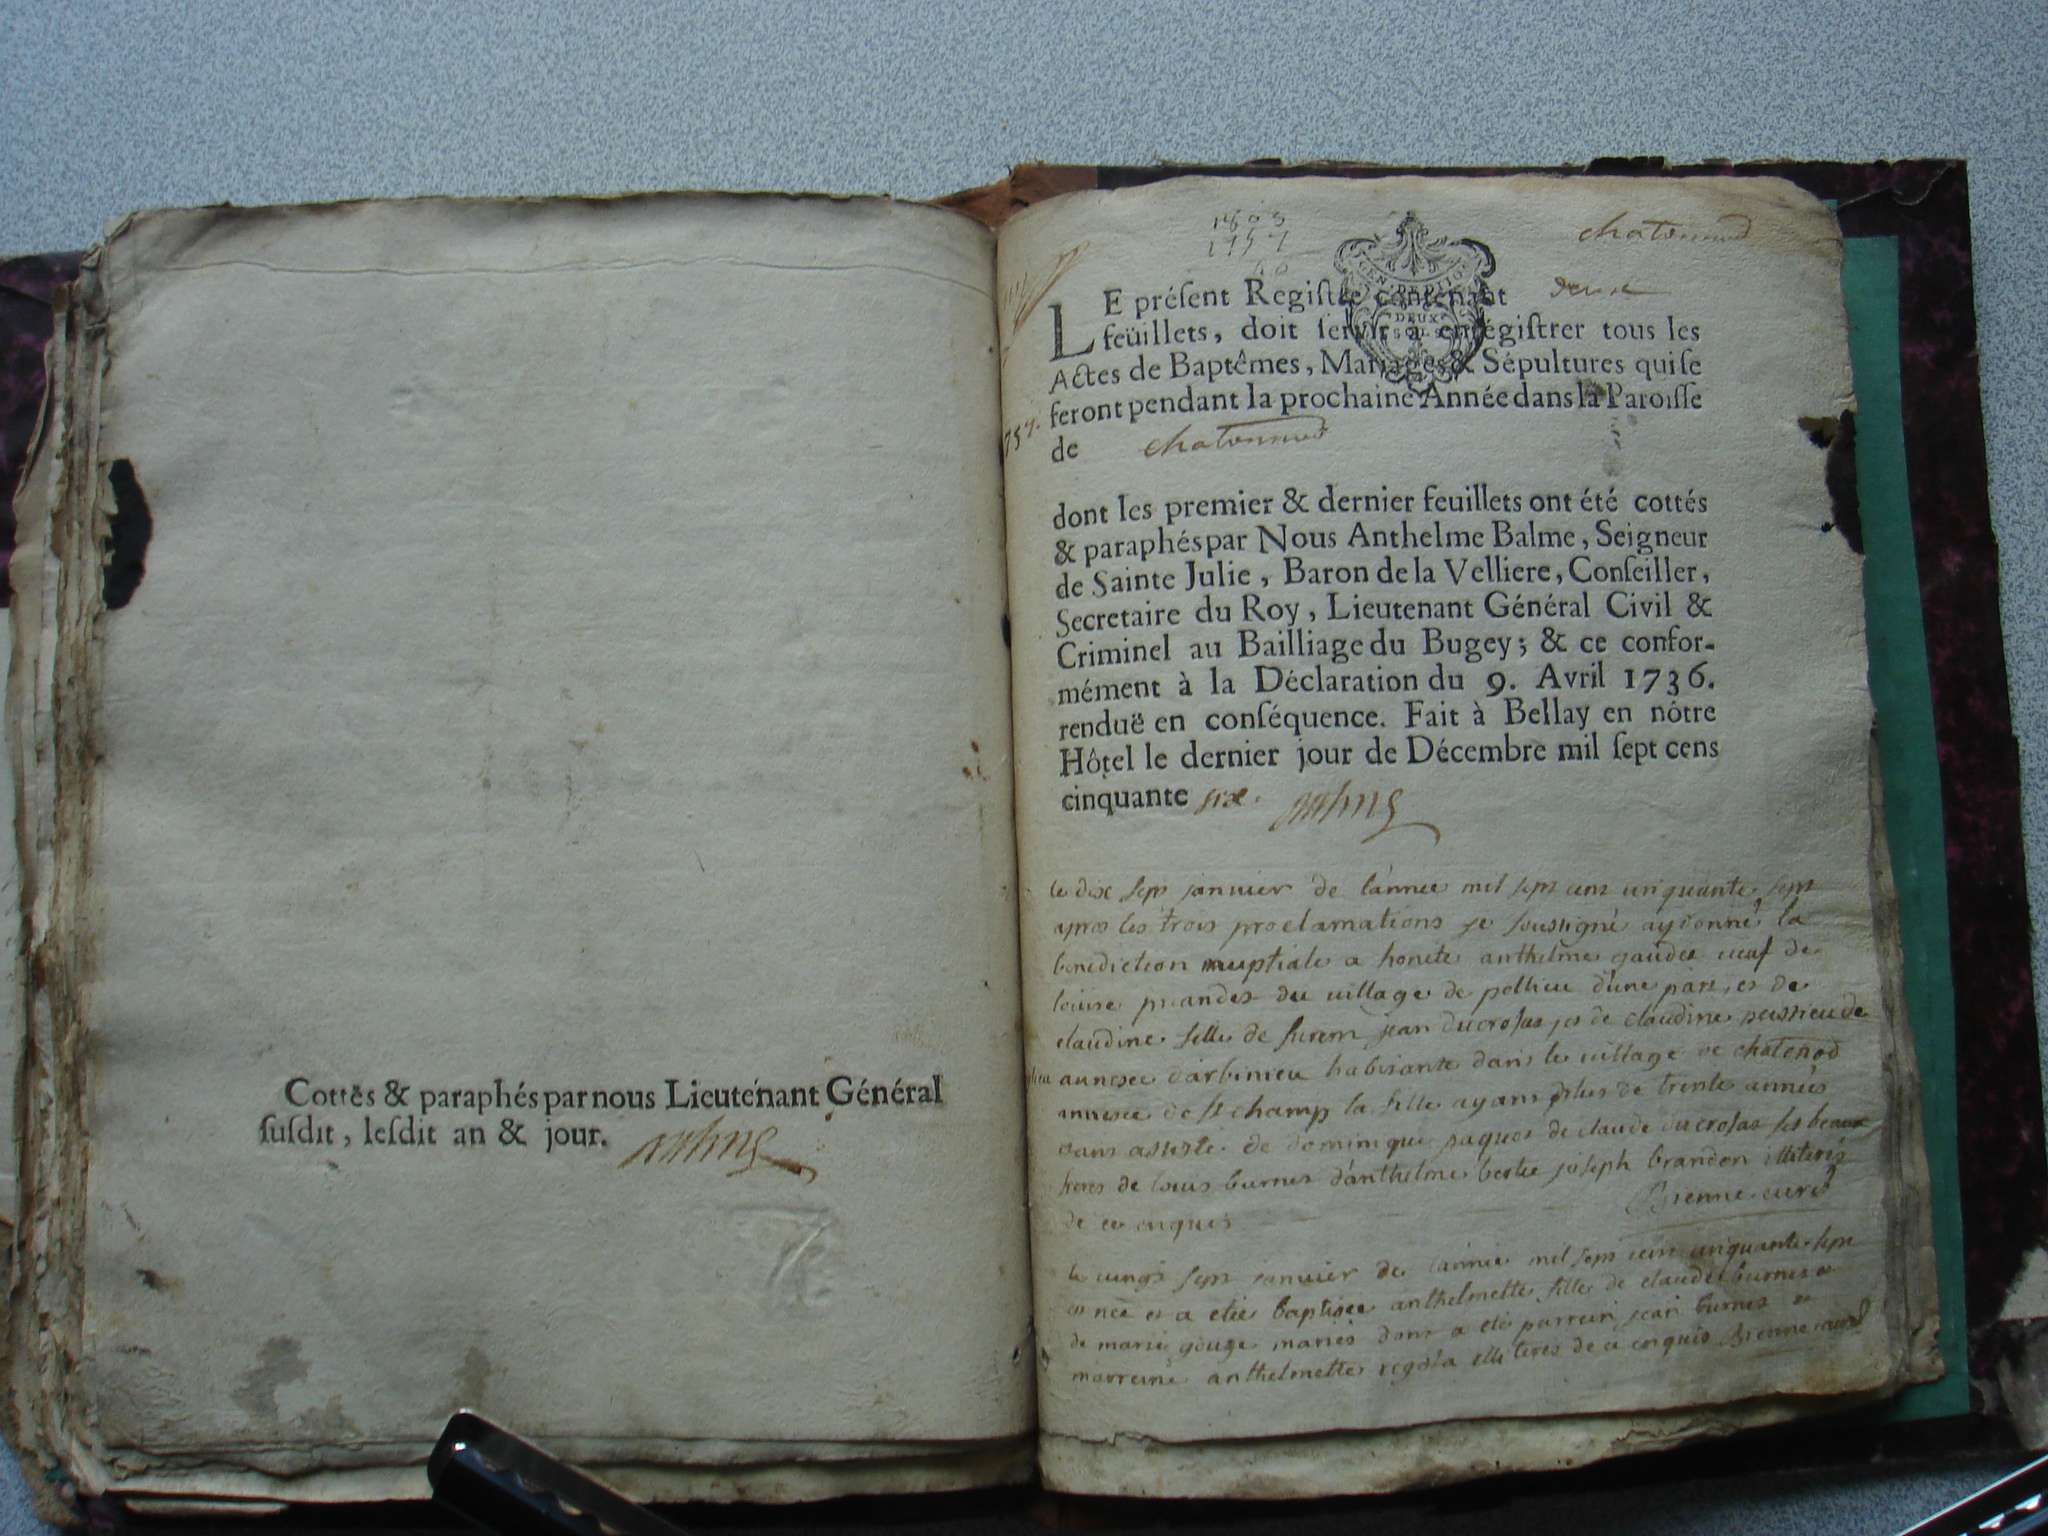 Cottés & paraphés par nous Lieutenant Général
susdit, lesdit an & jour.
1757
chatonnod
LE présent Registre contenant deux
feüillets, doit servir à enrégistrer tous les
Actes de Baptêmes, Mariages & Sépultures qui se
feront pendant la prochaine Année dans la Paroisse
de chatonnod
DEUX
SOLS
dont les premier & dernier feuillets ont été cottés
& paraphés par Nous Anthelme Balme, Seigneur
de Sainte Julie, Baron de la Velliere, Conseiller,
Secretaire du Roy, Lieutenant Général Civil &
Criminel au Bailliage du Bugey; & ce confor-
mément à la Déclaration du 9. Avril 1736.
renduë en conséquence. Fait à Bellay en nôtre
Hôtel le dernier jour de Décembre mil sept cens
cinquante six.
le dix sept janvier de lannee mil sept cens cinquante sept
apres les trois proclamations je soussigné ay donné la
benediction nuptiale a honete anthelme gaudee veuf de
louise du village de pollieu dune part, et de
claudine fille de jean ducrosas et de claudine de
d'arbinieu habitante dans le village de chatonod
annexe de st champ la fille ayant plus de trente années
assisté de dominique paques de claude ducrosas ses beaux
freres de louis burnet d'anthelme joseph brandon illiterés
de ce enquis curé
le vingt sept janvier de lannee mil sept cens cinquante sept
est née et a etée baptisée anthelmette fille de claude burnet et
de marie gouge mariés dont a eté parrein jean burnet et
marreine anthelmette illiteres de ce enquis curé